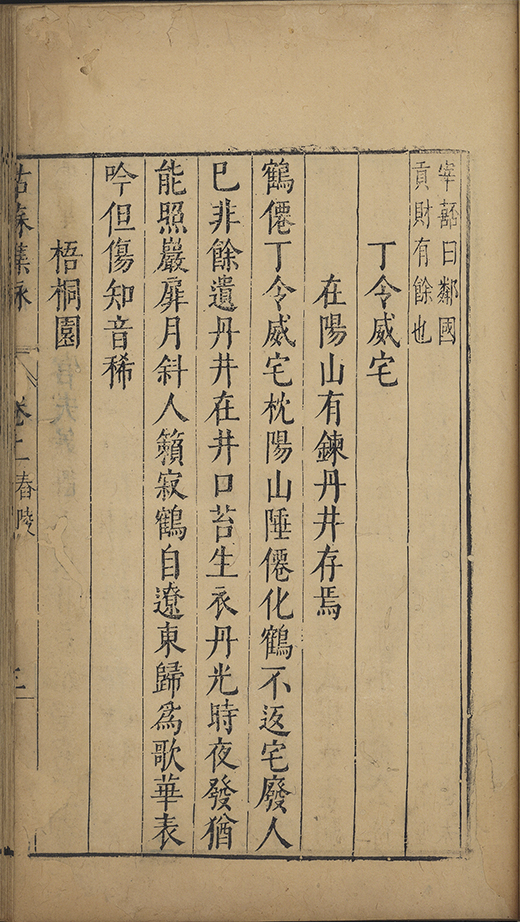 宰嚭曰鄰國
貢財有餘也
丁令威宅
在陽山有鍊丹井存焉
鶴僊丁令威宅枕陽山陲僊化鶴不返宅廢人
已非餘遺丹井在井口苔生衣丹光時夜發猶
能照巖扉月斜人籟寂鶴自遼東歸為歌華表
吟但傷知音稀
梧桐園
姑蘇雜詠 卷上 舂陵